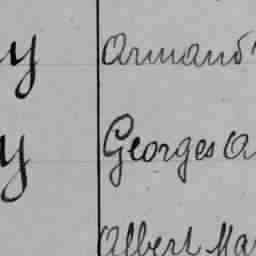 y Armand
y Georges A
Albert Ma